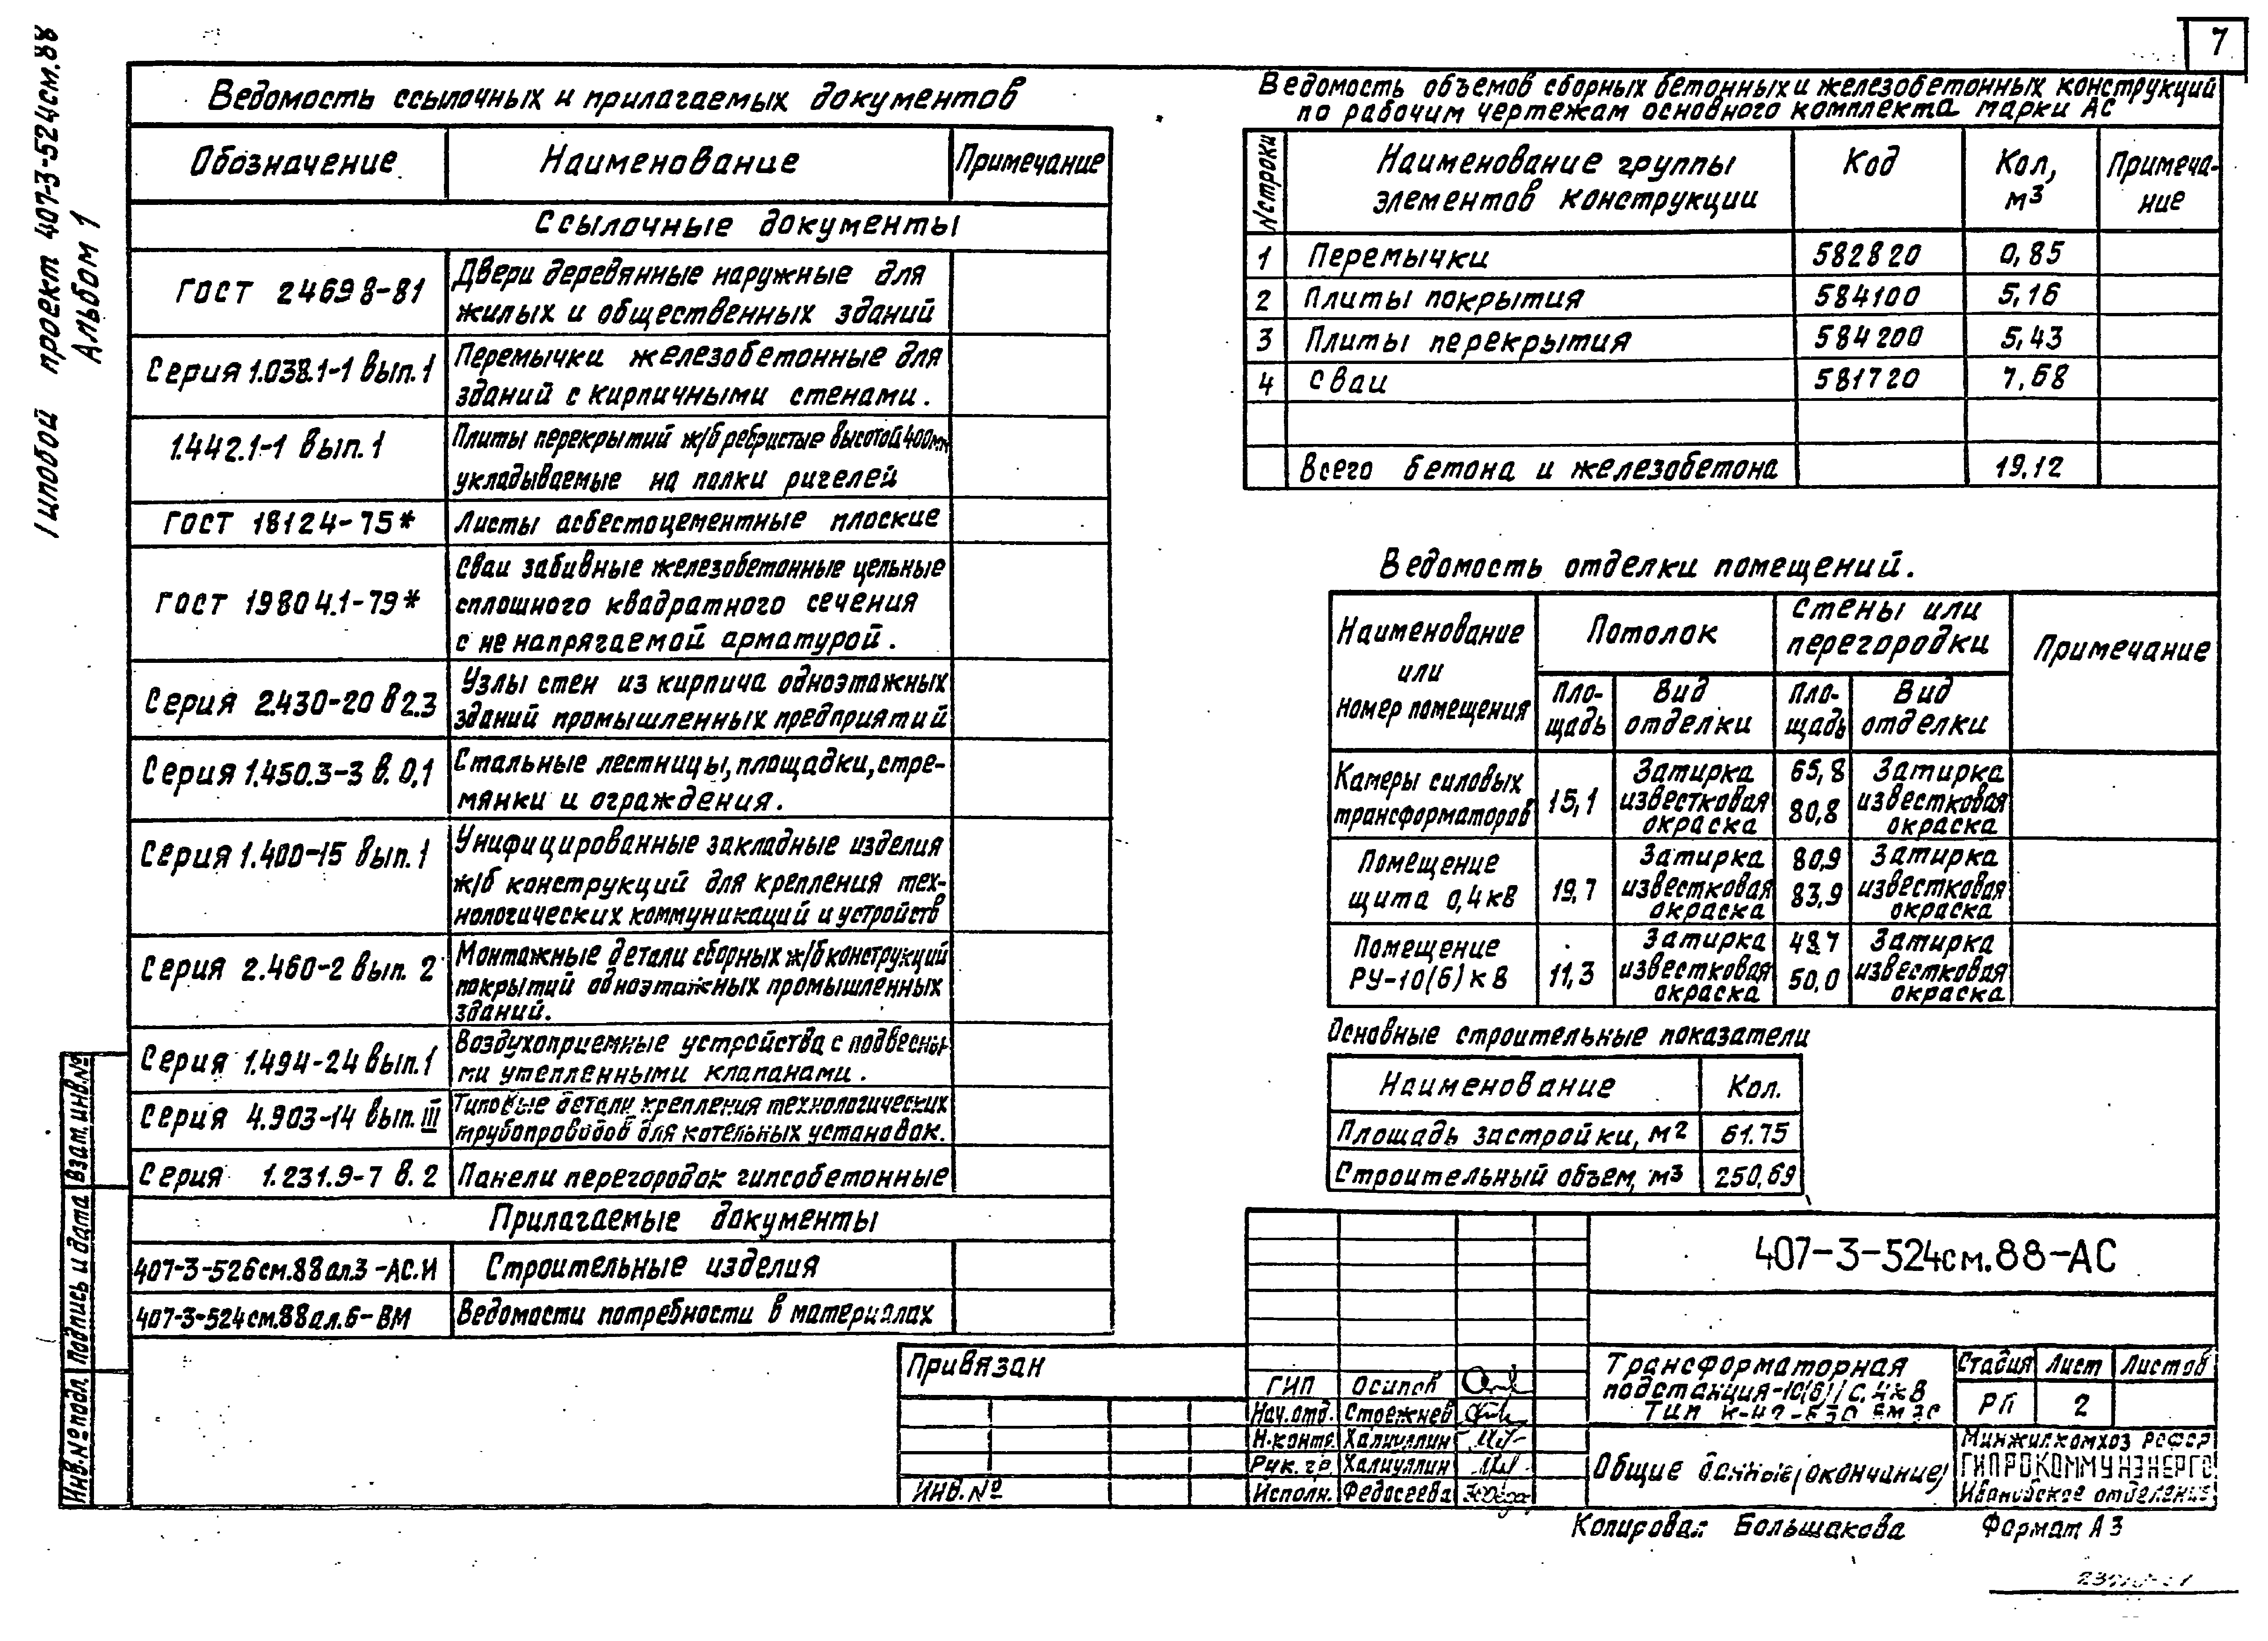 7
Типовой проект 407-3-524см.88
Альбом 1
Ведомость ссылочных и прилагаемых документов
Обозначение Наименование Примечание
Ссылочные документы
ГОСТ 24698-81 Двери деревянные наружные для
жилых и общественных зданий
Серия 1.038.1-1 вып.1 Перемычки железобетонные для
зданий с кирпичными стенами.
1.442.1-1 вып.1 Плиты перекрытий ж/б ребристые высотой 400мм
укладываемые на полки ригелей
ГОСТ 18124-75* Листы асбестоцементные плоские
ГОСТ 19804.1-79* Сваи забивные железобетонные цельные
сплошного квадратного сечения
с не напрягаемой арматурой.
Серия 2.430-20 в2.3 Узлы стен из кирпича одноэтажных
зданий промышленных предприятий
Серия 1.450.3-3 в. 0,1 Стальные лестницы, площадки, стре-
мянки и ограждения.
Серия 1.400-15 вып.1 Унифицированные закладные изделия
ж/б конструкций для крепления тех-
нологических коммуникаций и устройств
Серия 2.460-2 вып. 2 Монтажные детали сборных ж/б конструкций
покрытий одноэтажных промышленных
зданий.
Серия 1.494-24 вып.1 Воздухоприемные устройства с подвесны-
ми утепленными клапанами.
Серия 4.903-14 вып. III Типовые детали крепления технологических
трубопроводов для котельных установок.
Серия 1.231.9-7 в. 2 Панели перегородок гипсобетонные
Прилагаемые документы
407-3-526см.88ал.3-АС.И Строительные изделия
407-3-524см.88ал.6-ВМ Ведомости потребности в материалах
Ведомость объемов сборных бетонных и железобетонных конструкций
по рабочим чертежам основного комплекта марки АС
N строки Наименование группы элементов конструкции Код Кол, м3 Примеча-
ние
1 Перемычки 582820 0,85
2 Плиты покрытия 584100 5,16
3 Плиты перекрытия 584200 5,43
4 Сваи 581720 7,68
Всего бетона и железобетона 19.12
Ведомость отделки помещений.
Наименование или номер помещения Потолок Стены или перегородки Примечание
Пло-
щадь Вид отделки Пло-
щадь Вид отделки
Камеры силовых трансформаторов 15,1 Затирка известковая окраска 65,8 80,8 Затирка известковая окраска
Помещение щита 0,4кв 19,7 Затирка известковая окраска 80,9 83,9 Затирка известковая окраска
Помещение РУ-10(6)кВ 11,3 Затирка известковая окраска 50,0 Затирка известковая окраска
Основные строительные показатели
Наименование Кол.
Площадь застройки, м2 61.75
Строительный объем, м3 250,69
407-3-524см.88-АС
Привязан
Инв.№
ГИП Осипов
Нач.отд. Стоежнев
Н.контр. Халиуллин
Рук. гр. Халиуллин
Исполн. Федосеева
Трансформаторная
подстанция-10(6)/0.4кВ
Тип
Общие данные (окончание)
Стадия Лист Листов
РП 2
Минжилкомхоз РСФСР
ГИПРОКОММУНЭНЕРГО
Ивановское отделение
Копировал Большакова Формат А3
Взам. инв.№
Подпись и дата
Инв.№ подл.